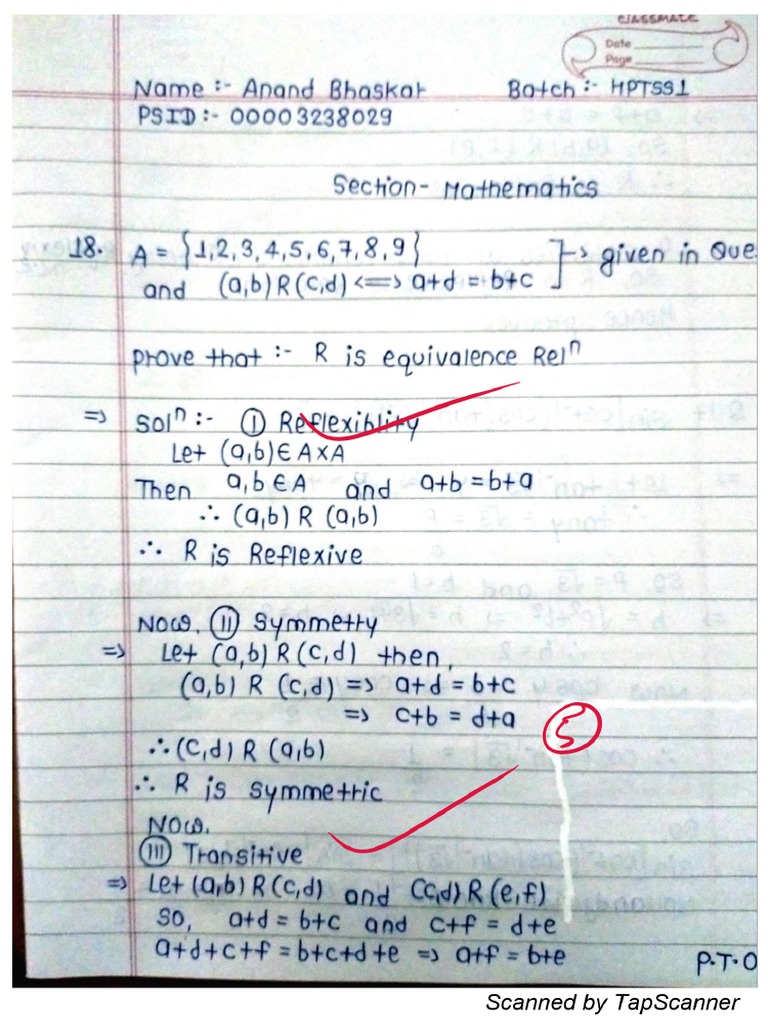 CLASSMATE
Date
Page
Name :- Anand Bhaskar Batch :- HPTSS1
PSID :- 00003238029
Section - Mathematics
18. A = {1,2,3,4,5,6,7,8,9}
and (a,b) R (c,d) <=> a+d = b+c ] → given in Que
prove that :- R is equivalence Relⁿ
⇒ Solⁿ :- Ⓘ Reflexiblity
Let (a,b) ∈ A×A
Then a,b ∈ A and a+b = b+a
∴ (a,b) R (a,b)
∴ R is Reflexive
Now, (II) Symmetry
⇒ Let (a,b) R (c,d) then,
(a,b) R (c,d) => a+d = b+c
=> c+b = d+a
5
∴ (c,d) R (a,b)
∴ R is symmetric
Now,
(III) Transitive
⇒ Let (a,b) R (c,d) and (c,d) R (e,f)
So, a+d = b+c and c+f = d+e
a+d+c+f = b+c+d+e => a+f = b+e
P.T.O
Scanned by TapScanner